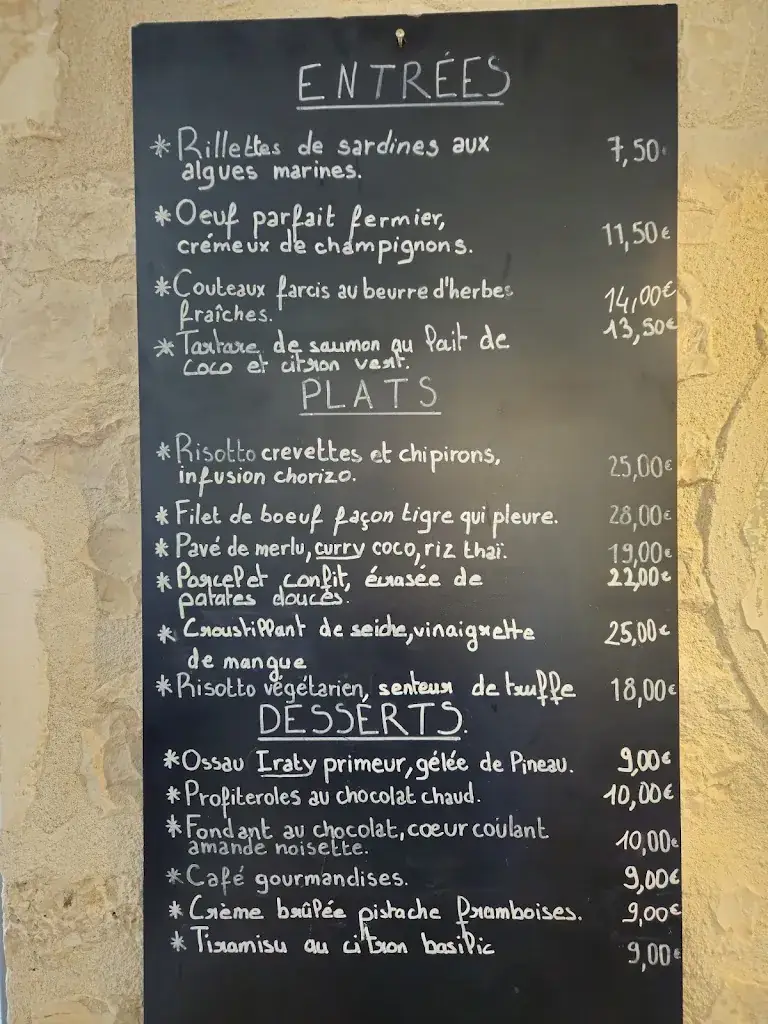 ENTRÉES
* Rillettes de sardines aux 7,50
algues marines.
* Oeuf parfait fermier,
crémeux de champignons. 11,50€
* Couteaux farcis au beurre d'herbes 14,00€
fraîches.
* Tartare de saumon au lait de 13,50€
coco et citron vert.
PLATS
* Risotto crevettes et chipirons,
infusion chorizo. 25,00€
* Filet de boeuf façon tigre qui pleure. 28,00€
* Pavé de merlu, curry coco, riz thaï. 19,00€
* Porcelet confit, écrasée de 22,00€
patates douces.
* Croustillant de seiche, vinaigrette 25,00€
de mangue
* Risotto végétarien, senteur de truffe 18,00€
DESSERTS.
* Ossau Iraty primeur, gélée de Pineau. 9,00€
* Profiteroles au chocolat chaud. 10,00€
* Fondant au chocolat, cœur coulant
amande noisette. 10,00€
* Café gourmandises. 9,00€
* Crème brûlée pistache framboises. 9,00€
* Tiramisu au citron basilic 9,00€